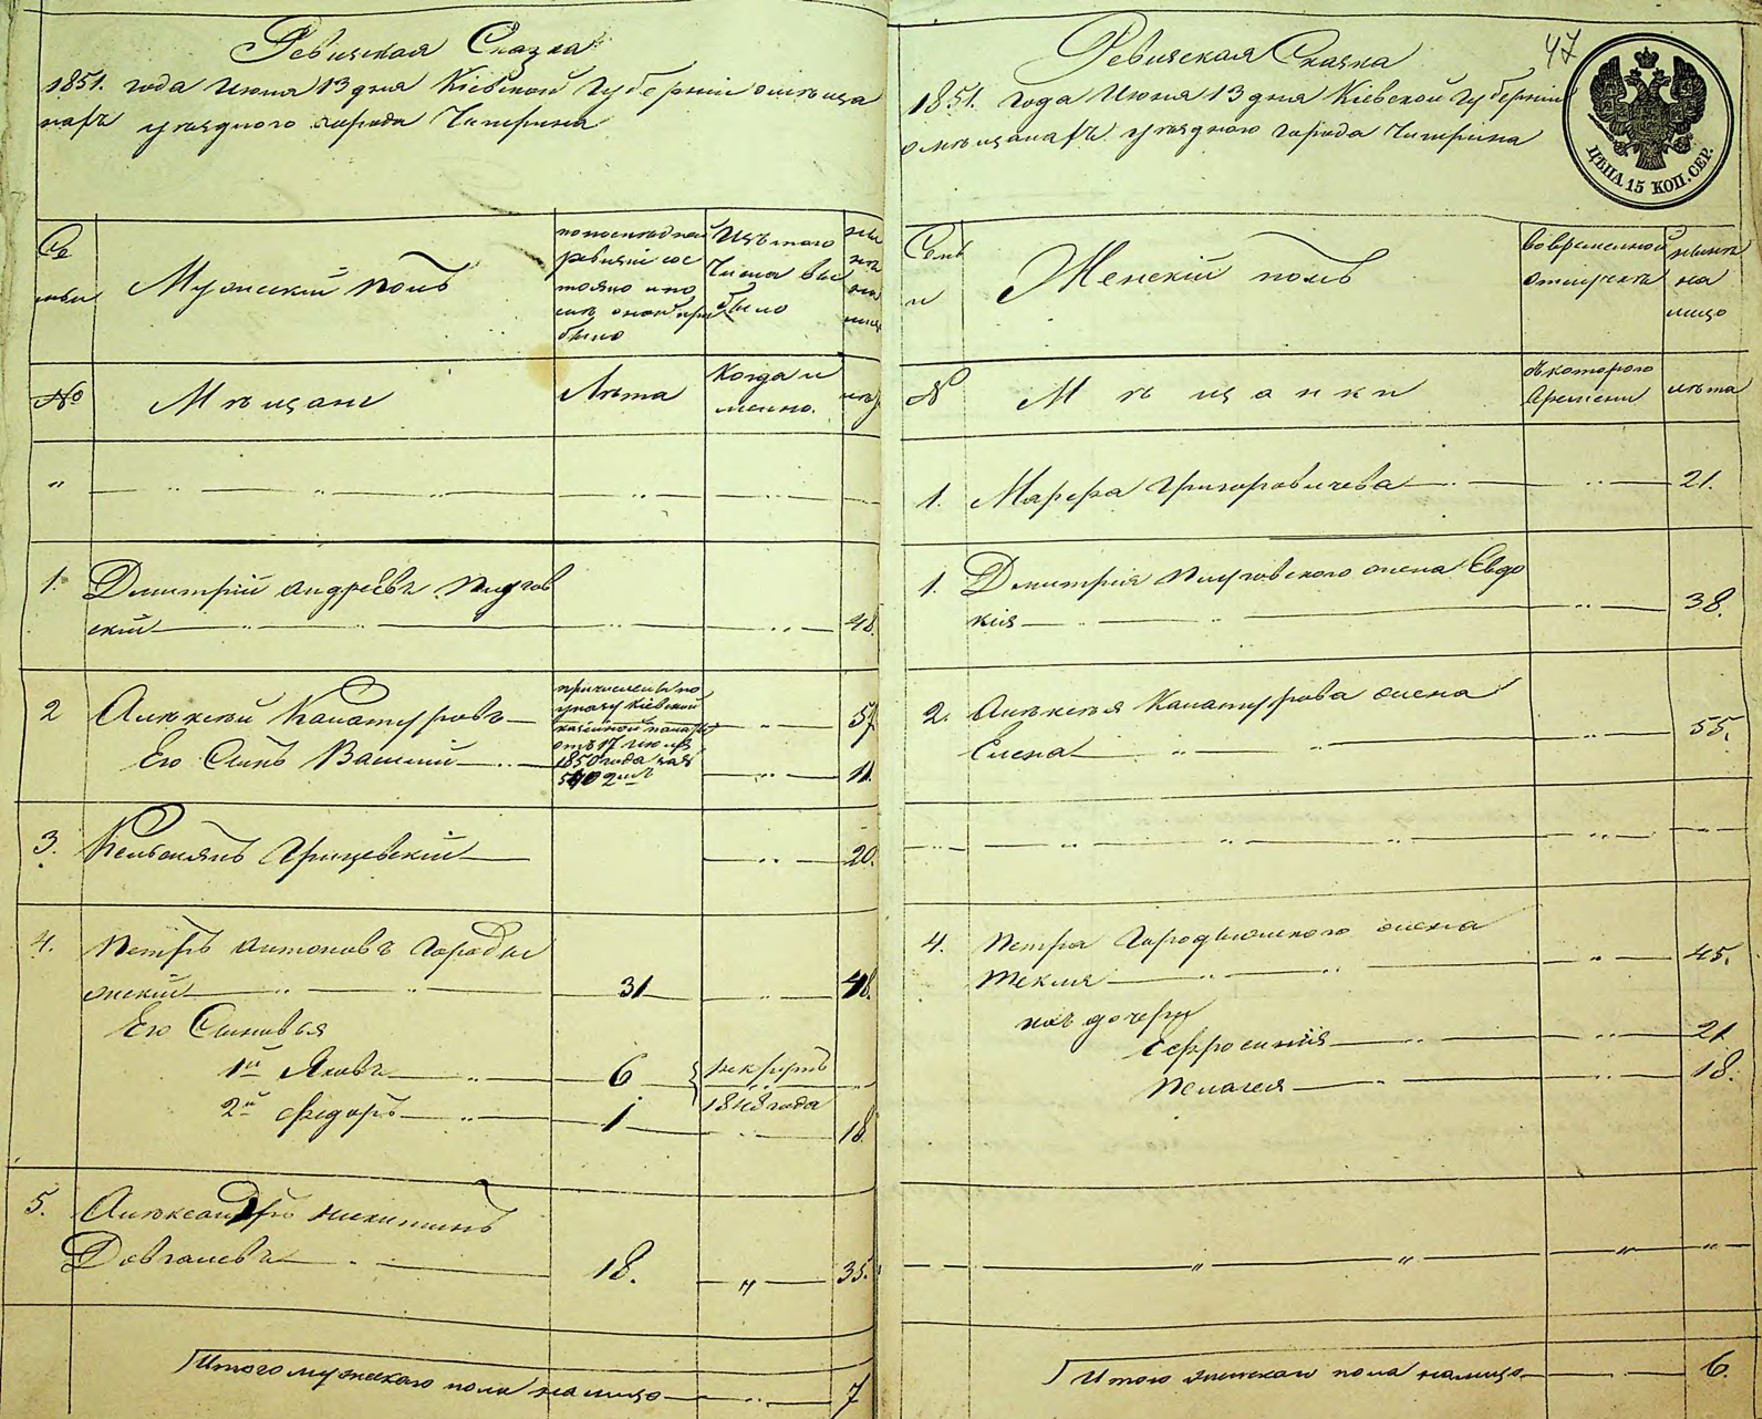 Ревизская Сказка
1851. года Июня 13 дня Кіевской Губерніи о мѣща
нахъ уѣзднаго города Чигирина
Се
мьи
Мужескій полъ
по последней
ревизіи сос
тояло и по
слѣ оной при
было
Изъ того
числа вы
было
№
Мѣщане
Лѣта
Когда и
менно.
"
1. Дмитрій Андреевъ
скій 48.
2 Алексѣй Канатуровъ 57
Его Сынъ Василій 11.
причислены по
указу Кіевской
казенной палаты
отъ 17 Іюля
1850 года за №
3. Грицевскій 20.
4. Петръ Антоновъ Городы
скій 31 48.
Его Сыновья
1й Яковъ 6 рекрутъ
1848 года
2й Федоръ 1 18
5. Александръ Никитинъ
Довгалевъ 18. " 35.
Итого мужескаго пола на лицо 7
Ревизская Сказка
47
1851. Года Июня 13 дня Кіевской Губерніи
о мѣщанахъ уѣзднаго города Чигирина
ЦѢНА 15 КОП. СЕР.
Семь
и
Женскій полъ
во временной
отлучкѣ
нынѣ
на
лицо
№
Мѣщанки
съ котораго
времени
лѣта
1. Марфа Григоровичева 21.
1. Дмитрія жена Евдо
кія 38.
2. Алексѣя Канатурова жена
Елена 55.
4. Петра жена
Текля 45.
ихъ дочери
Ефросинія 21
Пелагея 18.
Итого женскаго пола на лицо 6.